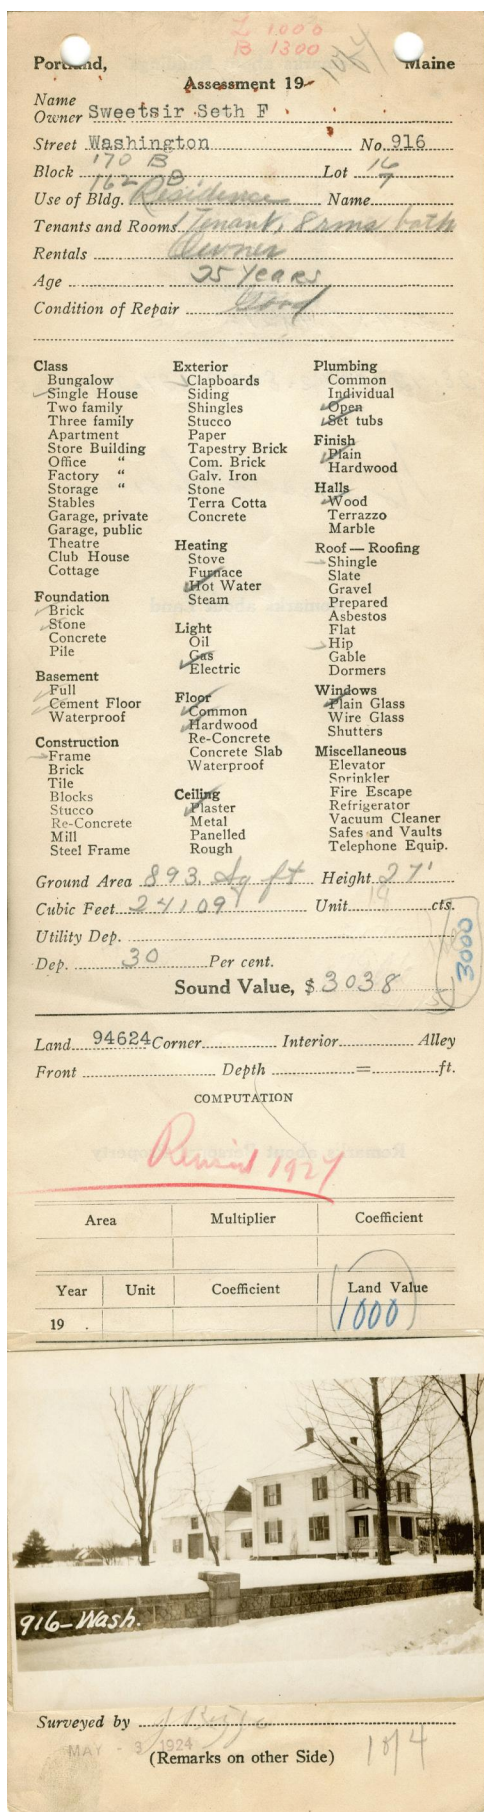 L 1000
B 1300
1 of 4
Portland, Maine
Assessment 19
Name
Owner Sweetsir Seth F
Street Washington No. 916
170 B 16
Block Lot
162 B 7
Use of Bldg. Residence Name
Tenants and Rooms 1 Tenant, 8 rms bath
Rentals Owner
Age 25 Years
Condition of Repair Good
Class
Bungalow
Single House
Two family
Three family
Apartment
Store Building
Office "
Factory "
Storage "
Stables
Garage, private
Garage, public
Theatre
Club House
Cottage
Foundation
Brick
Stone
Concrete
Pile
Basement
Full
Cement Floor
Waterproof
Construction
Frame
Brick
Tile
Blocks
Stucco
Re-Concrete
Mill
Steel Frame
Exterior
Clapboards
Siding
Shingles
Stucco
Paper
Tapestry Brick
Com. Brick
Galv. Iron
Stone
Terra Cotta
Concrete
Heating
Stove
Furnace
Hot Water
Steam
Light
Oil
Gas
Electric
Floor
Common
Hardwood
Re-Concrete
Concrete Slab
Waterproof
Ceiling
Plaster
Metal
Panelled
Rough
Plumbing
Common
Individual
Open
Set tubs
Finish
Plain
Hardwood
Halls
Wood
Terrazzo
Marble
Roof — Roofing
Shingle
Slate
Gravel
Prepared
Asbestos
Flat
Hip
Gable
Dormers
Windows
Plain Glass
Wire Glass
Shutters
Miscellaneous
Elevator
Sprinkler
Fire Escape
Refrigerator
Vacuum Cleaner
Safes and Vaults
Telephone Equip.
Ground Area 893 Sq ft Height 27'
Cubic Feet 24109 Unit 18 cts.
Utility Dep.
Dep. 30 Per cent.
3000
Sound Value, $ 3038
Land 94624 Corner Interior Alley
Front Depth = ft.
COMPUTATION
Revised 1927
Area Multiplier Coefficient
Year Unit Coefficient Land Value
19 1000
916-Wash.
Surveyed by
MAY - 3 1924
(Remarks on other Side)
1 of 4